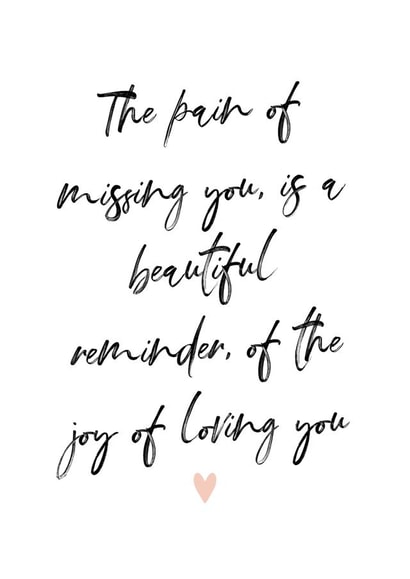 The pain of
missing you, is a
beautiful
reminder, of the
joy of loving you